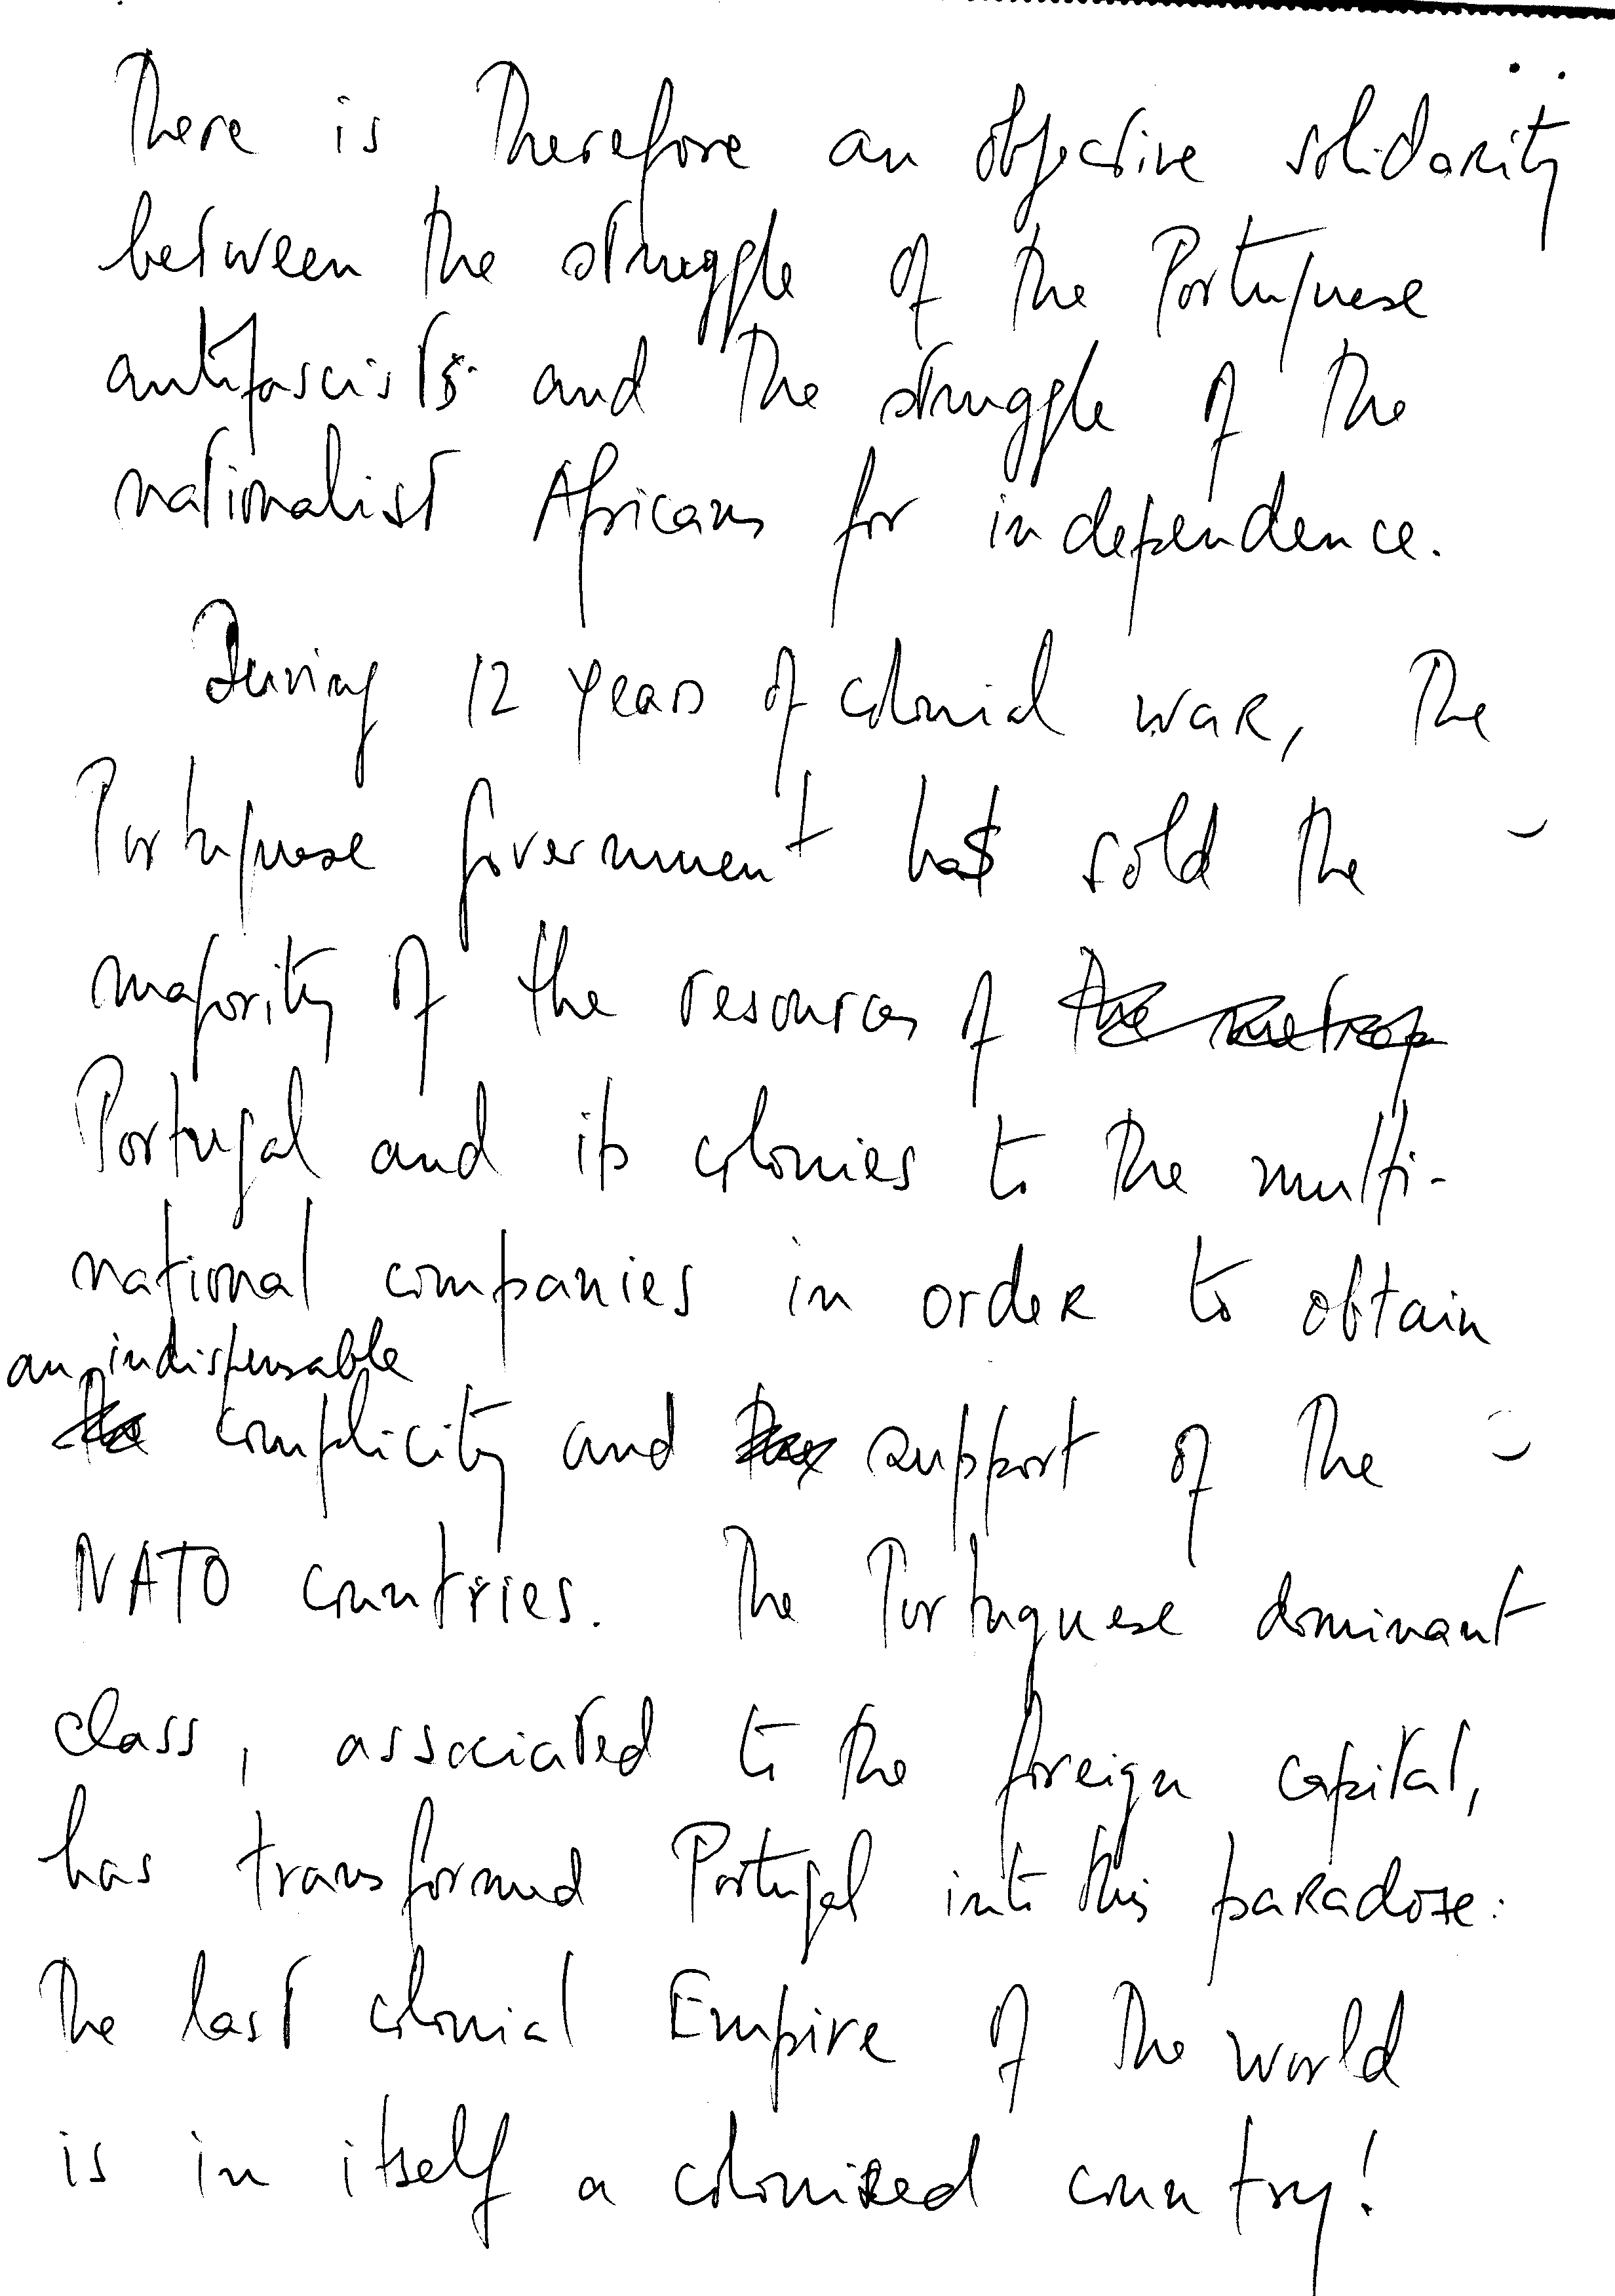 There is therefore an objective solidarity
between the struggle of the Portuguese
antifascists and the struggle of the
nationalist Africans for independence.
During 12 years of colonial war, the
Portuguese government has sold the
majority of the resources of the metrop
Portugal and its colonies to the multi-
national companies in order to obtain
an indispensable
the complicity and the support of the
NATO countries. The Portuguese dominant
class, associated to the foreign capital,
has transformed Portugal into this paradoxe:
The last colonial Empire of the world
is in itself a colonized country!